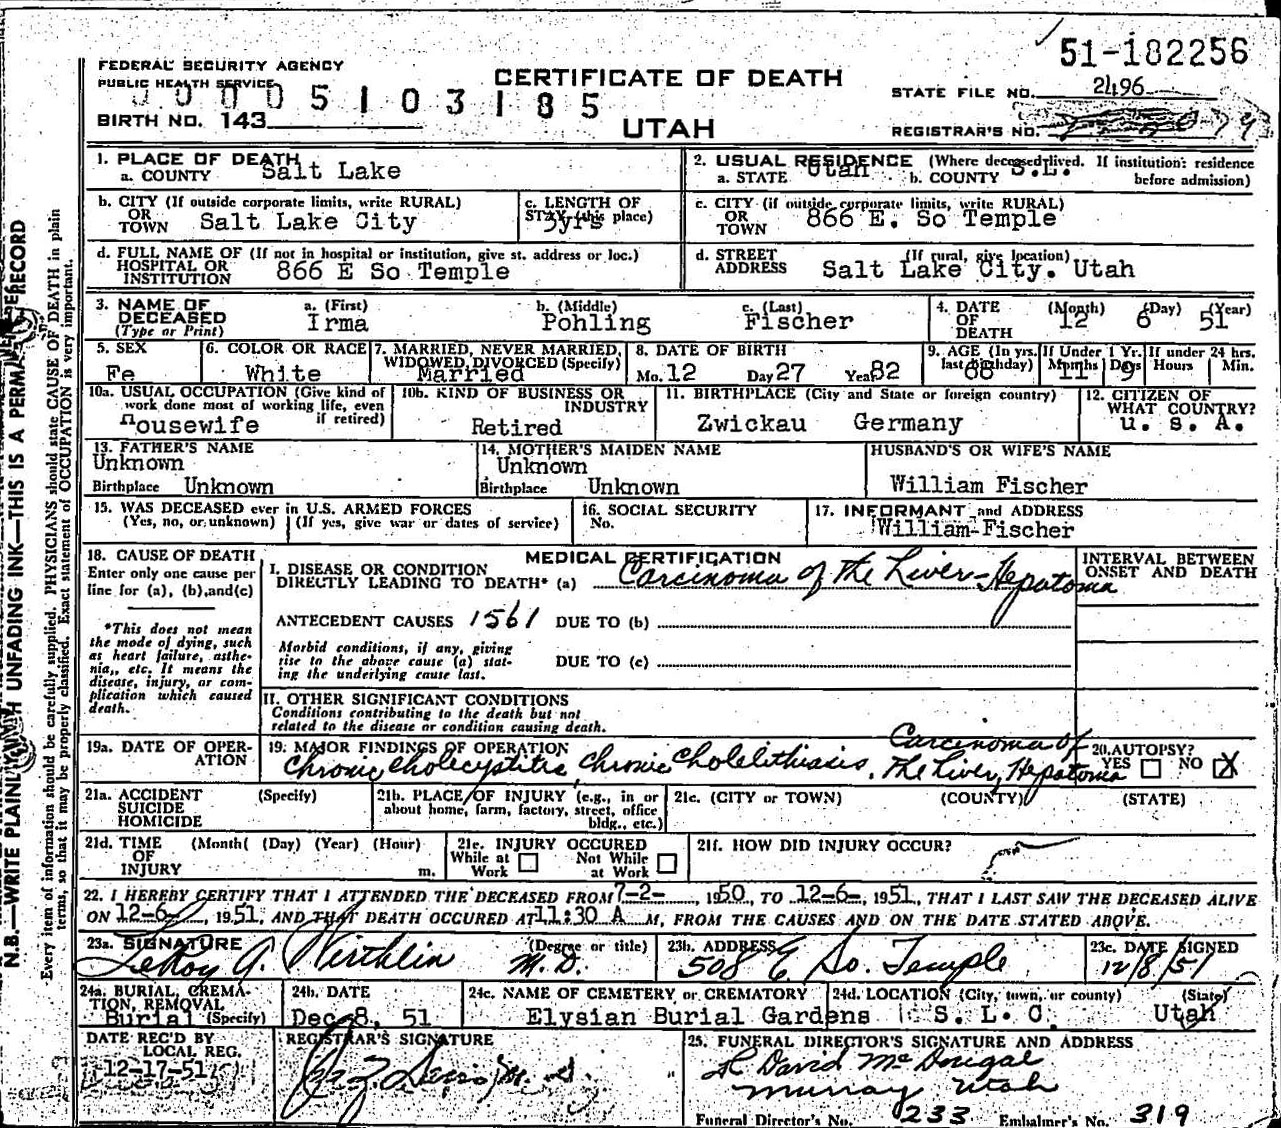 51-182256
FEDERAL SECURITY AGENCY
PUBLIC HEALTH SERVICE
CERTIFICATE OF DEATH
STATE FILE NO. 2496
00005103185
BIRTH NO. 143
UTAH
REGISTRAR'S NO.
1. PLACE OF DEATH
a. COUNTY Salt Lake
2. USUAL RESIDENCE (Where deceased lived. If institution: residence before admission)
a. STATE Utah b. COUNTY S.L.
b. CITY (If outside corporate limits, write RURAL)
OR TOWN Salt Lake City
c. LENGTH OF STAY (this place) 3yrs
c. CITY (if outside corporate limits, write RURAL)
OR TOWN 866 E. So Temple
d. FULL NAME OF (If not in hospital or institution, give st. address or loc.)
HOSPITAL OR INSTITUTION 866 E So Temple
d. STREET ADDRESS (If rural, give location)
Salt Lake City. Utah
3. NAME OF DECEASED (Type or Print)
a. (First) Irma
b. (Middle) Pohling
c. (Last) Fischer
4. DATE OF DEATH (Month) (Day) (Year)
12 6 51
5. SEX Fe
6. COLOR OR RACE White
7. MARRIED, NEVER MARRIED, WIDOWED, DIVORCED (Specify) Married
8. DATE OF BIRTH
Mo. 12 Day 27 Year 82
9. AGE (In yrs. last Birthday) 68
If Under 1 Yr. Months 11 Days 9
If under 24 hrs. Hours Min.
10a. USUAL OCCUPATION (Give kind of work done most of working life, even if retired) Housewife
10b. KIND OF BUSINESS OR INDUSTRY Retired
11. BIRTHPLACE (City and State or foreign country)
Zwickau Germany
12. CITIZEN OF WHAT COUNTRY? U. S. A.
13. FATHER'S NAME
Unknown
Birthplace Unknown
14. MOTHER'S MAIDEN NAME
Unknown
Birthplace Unknown
HUSBAND'S OR WIFE'S NAME
William Fischer
15. WAS DECEASED ever in U.S. ARMED FORCES
(Yes, no, or unknown) (If yes, give war or dates of service)
16. SOCIAL SECURITY No.
17. INFORMANT and ADDRESS
William Fischer
18. CAUSE OF DEATH
Enter only one cause per line for (a), (b), and (c)
*This does not mean the mode of dying, such as heart failure, asthenia, etc. It means the disease, injury, or complication which caused death.
MEDICAL CERTIFICATION
I. DISEASE OR CONDITION
DIRECTLY LEADING TO DEATH* (a) Carcinoma of the Liver - Hepatoma
INTERVAL BETWEEN ONSET AND DEATH
ANTECEDENT CAUSES 1561 DUE TO (b)
Morbid conditions, if any, giving rise to the above cause (a) stating the underlying cause last.
DUE TO (c)
II. OTHER SIGNIFICANT CONDITIONS
Conditions contributing to the death but not related to the disease or condition causing death.
19a. DATE OF OPERATION
19. MAJOR FINDINGS OF OPERATION
Chronic Cholecystitis, Chronic Cholelithiasis, Carcinoma of The Liver, Hepatoma
20. AUTOPSY?
YES NO X
21a. ACCIDENT SUICIDE HOMICIDE (Specify)
21b. PLACE OF INJURY (e.g., in or about home, farm, factory, street, office bldg., etc.)
21c. (CITY or TOWN) (COUNTY) (STATE)
21d. TIME OF INJURY (Month( (Day) (Year) (Hour) m.
21e. INJURY OCCURED
While at Work Not While at Work
21f. HOW DID INJURY OCCUR?
22. I HEREBY CERTIFY THAT I ATTENDED THE DECEASED FROM 7-2-, 1950, TO 12-6-, 1951, THAT I LAST SAW THE DECEASED ALIVE
ON 12-6-, 1951, AND THAT DEATH OCCURED AT 11:30 A M, FROM THE CAUSES AND ON THE DATE STATED ABOVE.
23a. SIGNATURE (Degree or title)
LeRoy A. Wirthlin M.D.
23b. ADDRESS
508 E So. Temple
23c. DATE SIGNED
12/8/51
24a. BURIAL, CREMATION, REMOVAL (Specify)
Burial
24b. DATE
Dec 8, 51
24c. NAME OF CEMETERY or CREMATORY
Elysian Burial Gardens
24d. LOCATION (City, town, or county) (State)
S. L. C. Utah
DATE REC'D BY LOCAL REG.
12-17-51
REGISTRAR'S SIGNATURE
25. FUNERAL DIRECTOR'S SIGNATURE AND ADDRESS
David McDougal
Murray Utah
Funeral Director's No. 233 Embalmer's No. 319
N.B.—WRITE PLAINLY WITH UNFADING INK—THIS IS A PERMANENT RECORD
Every item of information should be carefully supplied. PHYSICIANS should state CAUSE OF DEATH in plain
terms, so that it may be properly classified. Exact statement of OCCUPATION is very important.